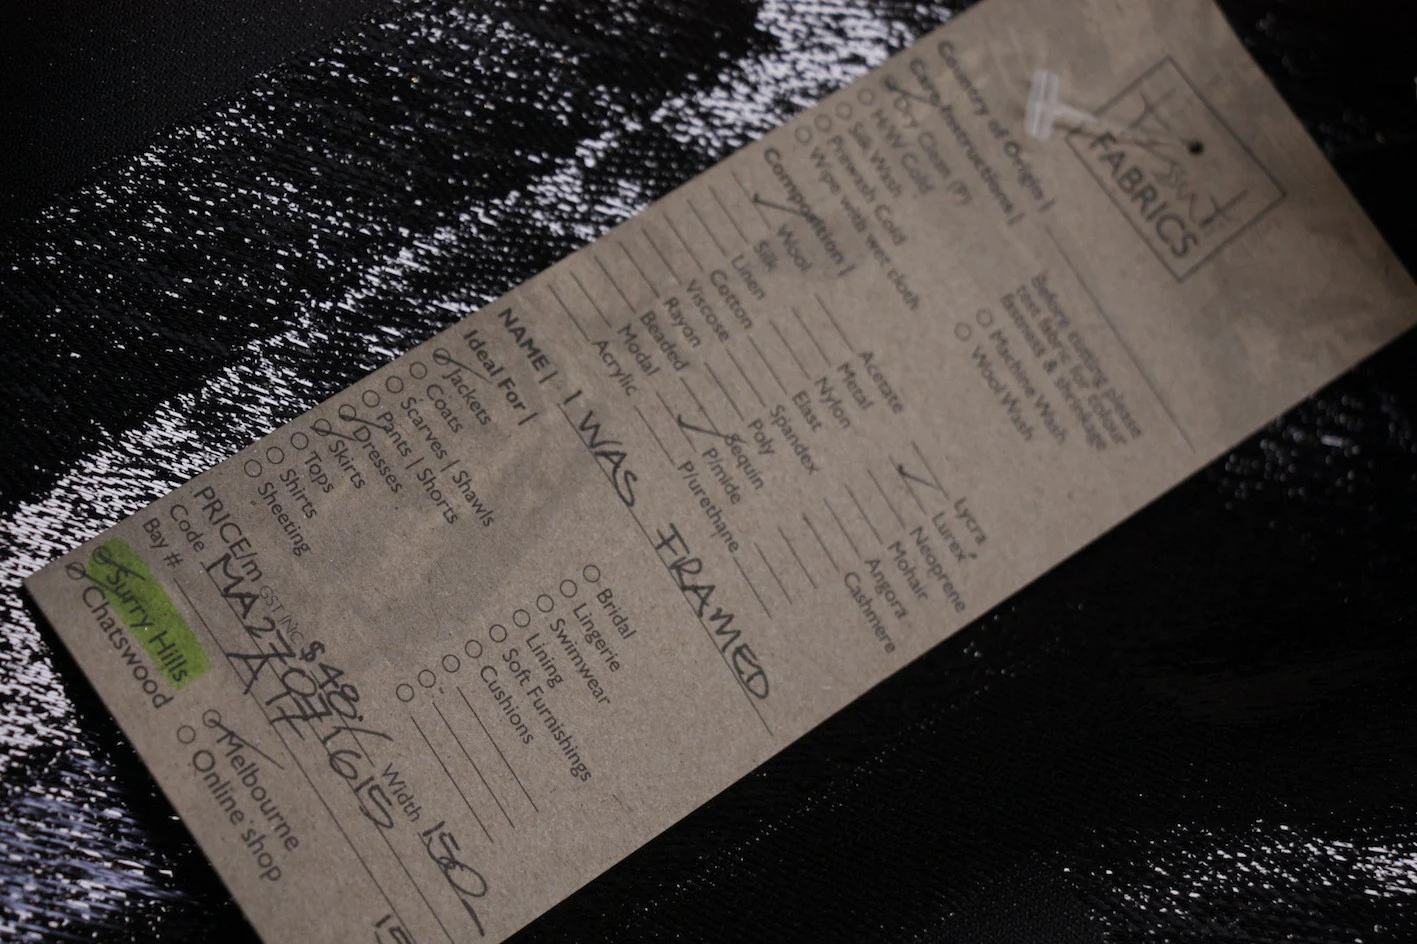 Tessuti
FABRICS
Country of Origin |
Care Instructions |
Dry Clean (P)
H/W Cold
Silk Wash
Prewash Cold
Wipe with wet cloth
Before cutting please
test fabric for colour
fastness & shrinkage
Machine Wash
Wool Wash
Composition |
Wool
Silk
Linen
Cotton
Viscose
Rayon
Beaded
Modal
Acrylic
Acetate
Metal
Nylon
Elast
Spandex
Poly
Sequin
P/mide
P/urethane
Lycra
Lurex
Neoprene
Mohair
Angora
Cashmere
NAME | I WAS FRAMED
Ideal For |
Jackets
Coats
Scarves | Shawls
Pants | Shorts
Dresses
Skirts
Tops
Shirts
Sheeting
Bridal
Lingerie
Swimwear
Lining
Soft Furnishings
Cushions
PRICE/m GST INC $48 Width 150
Code
Bay #:
Surry Hills
Chatswood
Melbourne
Online shop